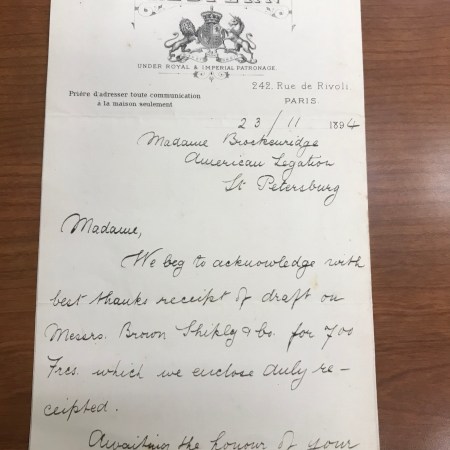 UNDER ROYAL & IMPERIAL PATRONAGE.
242, Rue de Rivoli
PARIS.
Prière d'adresser toute communication
à la maison seulement
23/11 1894
Madame Breckenridge
American Legation
St Petersburg
Madame,
We beg to acknowledge with
best thanks receipt of draft on
Messrs. Brown Shipley & Co. for 700
Frcs. which we enclose duly re-
ceipted.
Awaiting the honour of your